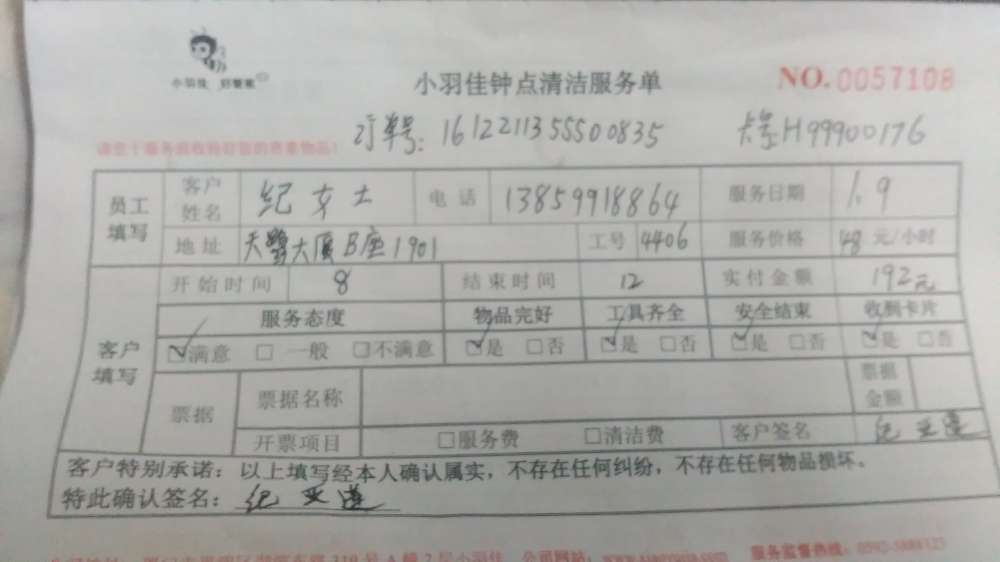 小羽佳 好管家
小羽佳钟点清洁服务单
NO.0057108
订单号：1612211355500835 卡号H99900176
员工填写 客户姓名 纪女士 电话 13859918864 服务日期 1.9
地址 天鹭大厦B座1901 工号 4406 服务价格 48元/小时
客户填写 开始时间 8 结束时间 12 实付金额 192元
服务态度 物品完好 工具齐全 安全结束 收到卡片
☑满意 □一般 □不满意 ☑是 □否 ☑是 □否 ☑是 □否 ☑是 □否
票据 票据名称 票据金额
开票项目 □服务费 □清洁费 客户签名 纪
客户特别承诺：以上填写经本人确认属实，不存在任何纠纷，不存在任何物品损坏。
特此确认签名：纪
310号A幢2层小羽佳 公司网站： 服务监督热线：